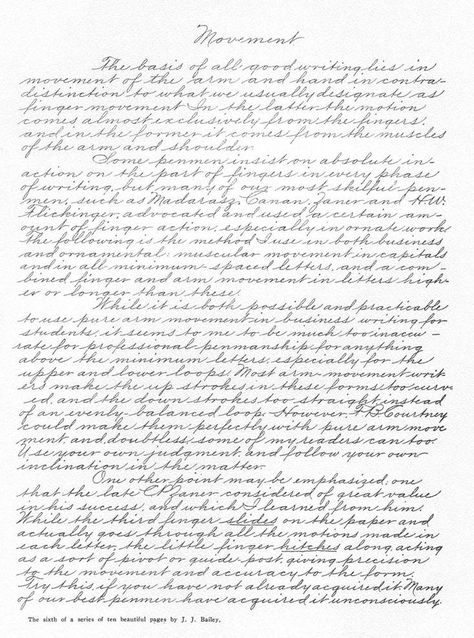 Movement
The basis of all good writing lies in
movement of the arm and hand in contra-
distinction to what we usually designate as
finger movement. In the latter the motion
comes almost exclusively from the fingers,
and in the former it comes from the muscles
of the arm and shoulder.
Some penmen insist on absolute in-
action on the part of fingers in every phase
of writing, but many of our most skilful pen-
men, such as Madarasz, Canan, Zaner and H.W.
Flickinger, advocated and used a certain am-
ount of finger action, especially in ornate work.
The following is the method I use in both business
and ornamental: muscular movement in capitals
and in all minimum-spaced letters, and a com-
bined finger and arm movement in letters high-
er or longer than these.
While it is both possible and practicable
to use pure arm movement in business writing for
students, it seems to me to be much too inaccu
rate for professional penmanship for anything
above the minimum letters, especially for the
upper and lower loops. Most arm-movement writ
ers make the up strokes in these forms too curv-
ed, and the down strokes too straight, instead
of an evenly-balanced loop. However, F.B. Courtney
could make them perfectly with pure arm move
ment, and doubtless some of my readers can too.
Use your own judgment, and follow your own
inclination in the matter.
One other point may be emphasized, one
that the late C.P. Zaner considered of great value
in his success, and which I learned from him.
While the third finger slides on the paper and
actually goes through all the motions made in
each letter, the little finger hitches along, acting
as a sort of pivot or guide post, giving precision
to the movement and accuracy to the form.
Try this, if you have not already acquired it. Many
of our best penmen have acquired it unconsciously.
The sixth of a series of ten beautiful pages by J. J. Bailey.